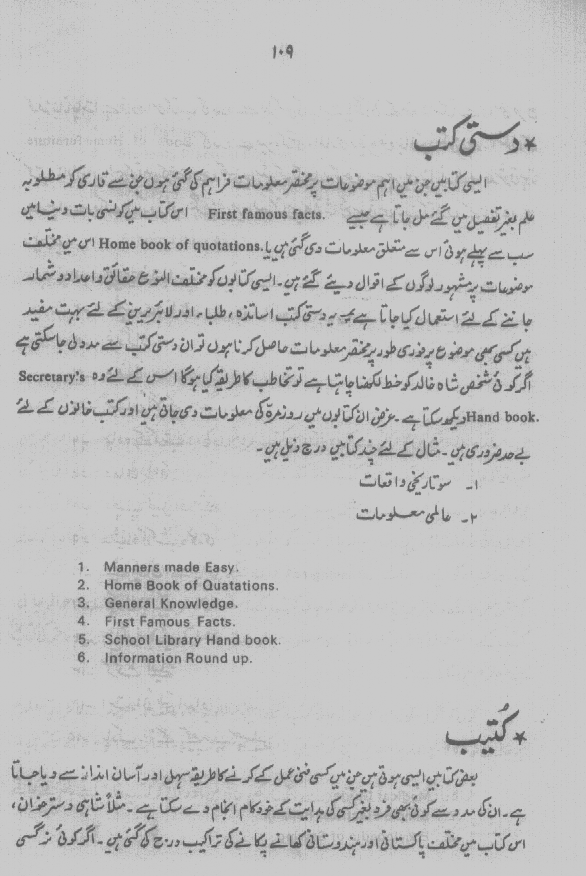 ۱۰۹
★ دستی کتب
ایسی کتابیں جن میں اہم موضوعات پر مختصر معلومات فراہم کی گئی ہوں جن سے قاری کو مطلوبہ
علم بغیر تفصیل میں گئے مل جاتا ہے جیسے First famous facts. اس کتاب میں کونسی بات دنیا میں
سب سے پہلے ہوئی اس سے متعلق معلومات دی گئی ہیں یا Home book of quotations. اس میں مختلف
موضوعات پر مشہور لوگوں کے اقوال دیئے گئے ہیں۔ ایسی کتابوں کو مختلف النوع حقائق و اعداد و شمار
جاننے کے لئے استعمال کیا جاتا ہے یہ دستی کتب اساتذہ، طلباء اور لائبریرین کے لئے بہت مفید
ہیں کسی بھی موضوع پر فوری طور پر مختصر معلومات حاصل کرنا ہوں تو ان دستی کتب سے مدد لی جاسکتی ہے
اگر کوئی شخص شاہ خالد کو خط لکھنا چاہتا ہے تو تخاطب کا طریقہ کیا ہوگا اس کے لئے وہ Secretary's
Hand book. دیکھ سکتا ہے۔ غرض ان کتابوں میں روزمرہ کی معلومات دی جاتی ہیں اور کتب خانوں کے لئے
بے حد ضروری ہیں۔ مثال کے لئے چند کتابیں درج ذیل ہیں۔
۱۔ سو تاریخی واقعات
۲۔ عالمی معلومات
1. Manners made Easy.
2. Home Book of Quatations.
3. General Knowledge.
4. First Famous Facts.
5. School Library Hand book.
6. Information Round up.
★ کُتیب
بعض کتابیں ایسی ہوتی ہیں جن میں کسی فنی عمل کے کرنے کا طریقہ سہل اور آسان انداز سے دیا جاتا
ہے۔ ان کی مدد سے کوئی بھی فرد بغیر کسی کی ہدایت کے خود کام انجام دے سکتا ہے۔ مثلاً شاہی دسترخوان،
اس کتاب میں مختلف پاکستانی اور ہندوستانی کھانے پکانے کی تراکیب درج کی گئی ہیں۔ اگر کوئی نرگسی